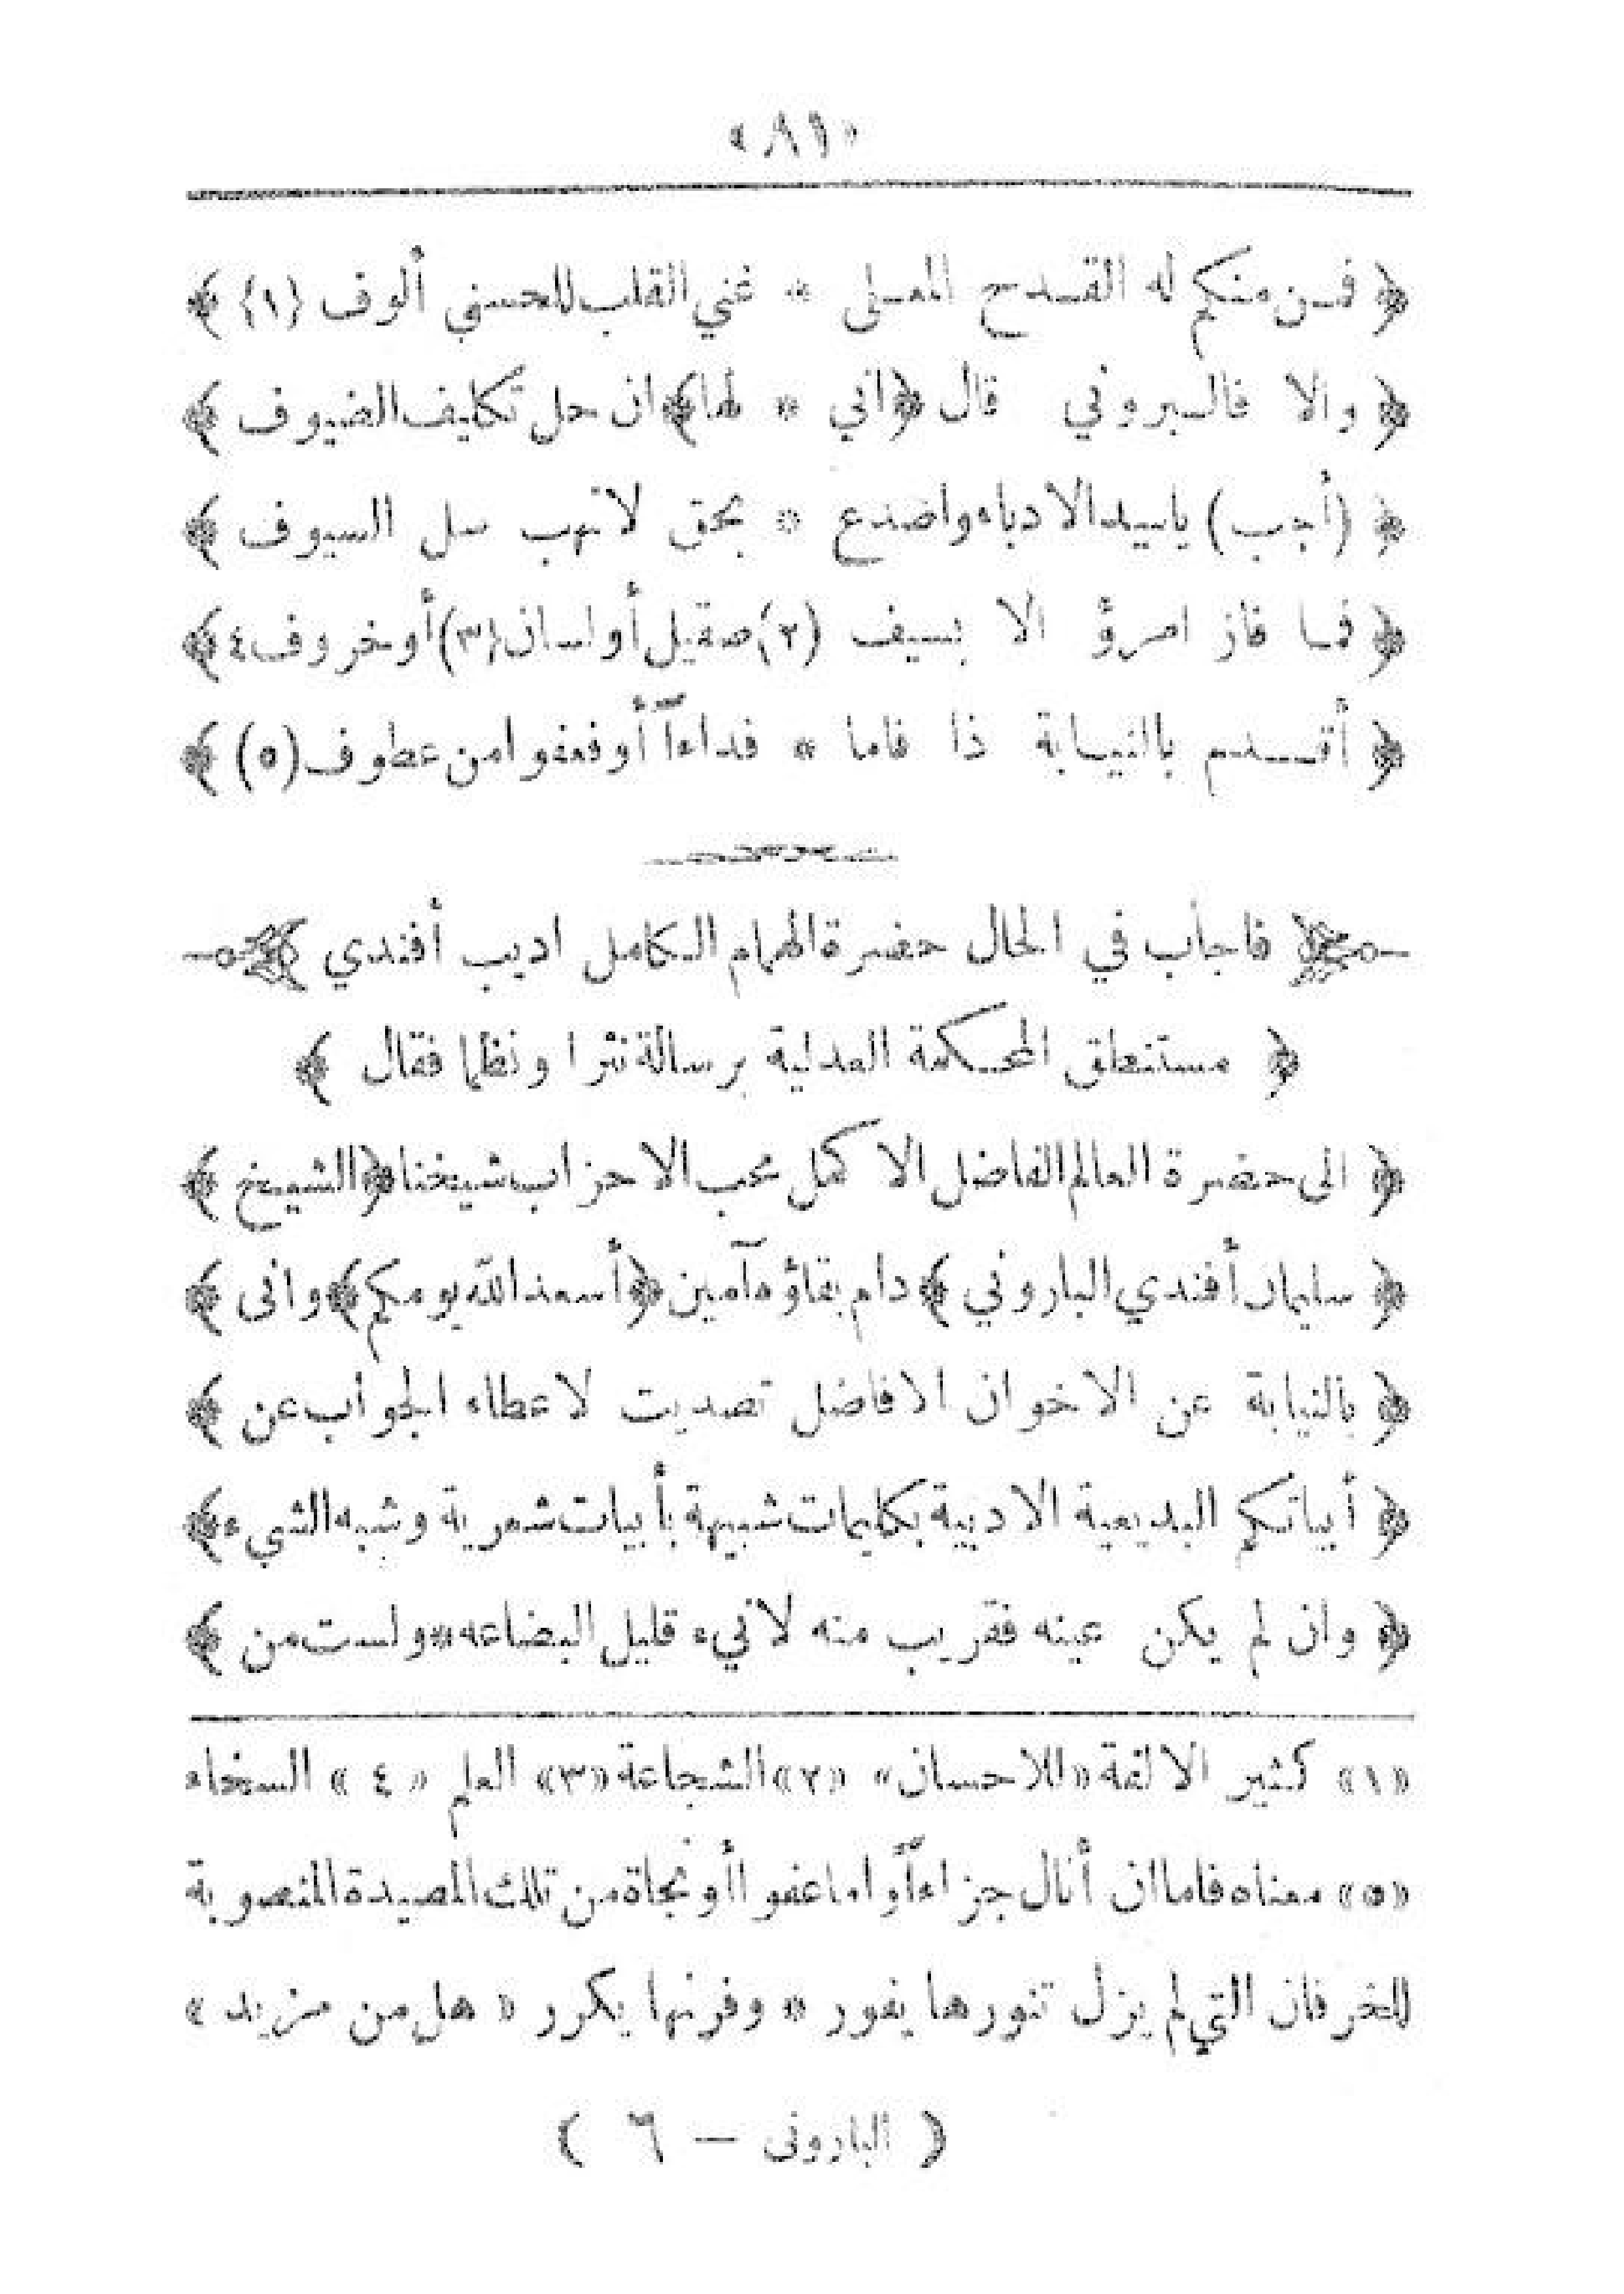 « ٨١ »
﴿ فمن منكم له القدح المعلى * غني القلب للحسنى ألوف {١} ﴾
﴿ والا فالبروني قال ﴿اني * لها﴾ ان حل تكليف الضيوف ﴾
﴿ (أجب) ياسيد الادباء واصدع * بحق لاتهب سل السيوف ﴾
﴿ فما فاز امرؤ الا بسيف (٢) صقيل أو لسان (٣) أو خروف ٤ ﴾
﴿ أقدم بالنيابة ذا فاما * فداءاً أو فعفوا من عطوف (٥) ﴾
﴿ فاجاب في الحال حضرة الهمام الكامل اديب أفندي ﴾
﴿ مستنطق المحكمة العدلية برسالة نثرا ونظما فقال ﴾
﴿ الى حضرة العالم الفاضل الاكمل محب الاحزاب شيخنا ﴿ الشيخ ﴾
﴿ سليمان أفندي الباروني ﴾ دام بقاؤه آمين ﴿ أسعد الله يومكم ﴾ وانى ﴾
﴿ بالنيابة عن الاخوان الافاضل تصديت لاعطاء الجواب عن ﴾
﴿ أبياتكم البديعية الادبية بكليمات شبيهة بأبيات شعرية وشبه الشيء ﴾
﴿ وان لم يكن عينه فقريب منه لانيء قليل البضاعه * ولست من ﴾
«١» كثير الالفة «للاحسان» «٢» الشجاعة «٣» العلم «٤» السخاء
«٥» معناه فاما ان أنال جزاءاً واما عفوا أو نجاة من تلك المصيدة المنصوبة
للخرفان التي لم يزل تنورها يفور * وفرنها يكرر « هل من مزيد »
( البارونى — ٦ )